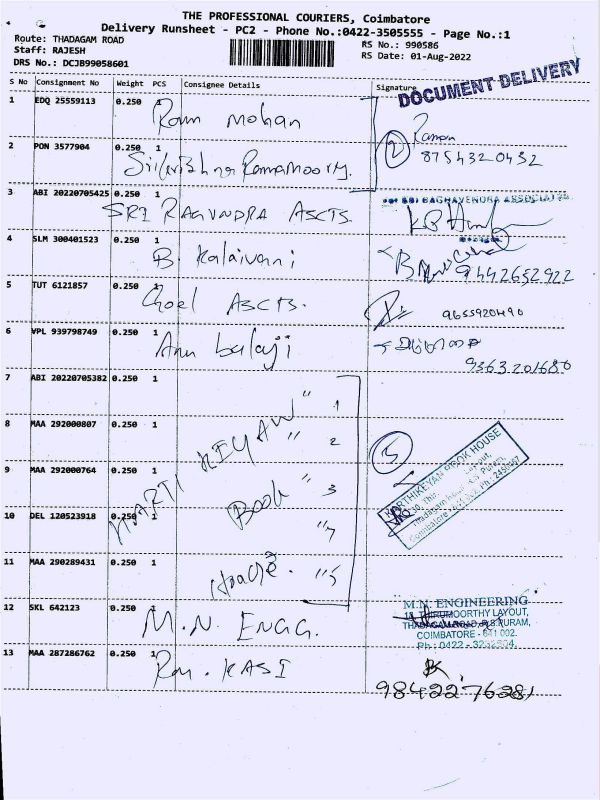 THE PROFESSIONAL COURIERS, Coimbatore
Delivery Runsheet - PC2 - Phone No.:0422-3505555 - Page No.:1
Route: THADAGAM ROAD
RS No.: 990586
Staff: RAJESH
RS Date: 01-Aug-2022
DRS No.: DCJB99058601
DOCUMENT DELIVERY
S No Consignment No Weight PCS Consignee Details Signature
1 EDQ 25559113 0.250 1 Ram Mohan
Raman
2 PON 3577904 0.250 1 2 8754320432
Ramamoorthy.
3 ABI 20220705425 0.250 1 SRI RAGVNDRA ASCTS.
SRI RAGHAVENDRA ASSOCIATES
4 SLM 300401523 0.250 1 B. Kalaivani
9442652922
5 TUT 6121857 0.250 1 Goel ASCTS. 9655920490
6 VPL 939798749 0.250 1 Arun balaji
9363201680
7 ABI 20220705382 0.250 1 " 1
8 MAA 292000807 0.250 1 KEYAN " 2 5
9 MAA 292000764 0.250 1 Book " 3
KARTHIKEYAN BOOK HOUSE
10 DEL 120523918 0.250 1 "4
11 MAA 290289431 0.250 1 "5
12 SKL 642123 0.250 1 M.N. ENGG.
M.N. ENGINEERING
THIRUMOORTHY LAYOUT,
THADAGAM ROAD, R.S.PURAM,
COIMBATORE - 641 002.
Ph : 0422 -
13 MAA 287286762 0.250 1 KASI